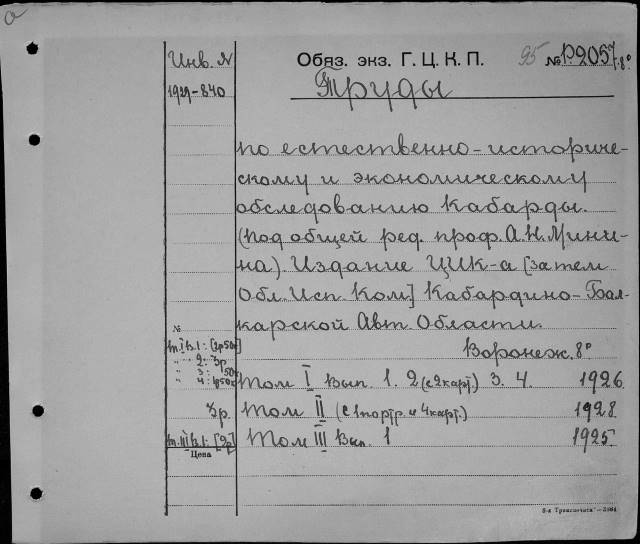 Инв. N
Обяз. экз. Г. Ц. К. П. 95 № Р2057.8°
1929-840
Труды
по естественно-историче-
скому и экономическому
обследованию Кабарды.
(под общей ред. проф. А.Н. Мини-
на). Издание ЦИК-а [затем
Обл. Исп. Ком] Кабардино-Бал-
карской Авт. Области.
№
Воронеж. 8°
т. I в. 1: [3р50к]
" " 2: 3р
" 3: 50к
" 4: 1р50к
Том I Вып. 1. 2 (с 2 карт.) 3. 4. 1926
3р. Том II (с 1 портр. и 4 карт.) 1928
т. III в. 1: [2р] Том III Вып. 1 1925
Цена
5-я Транспечать — 3984